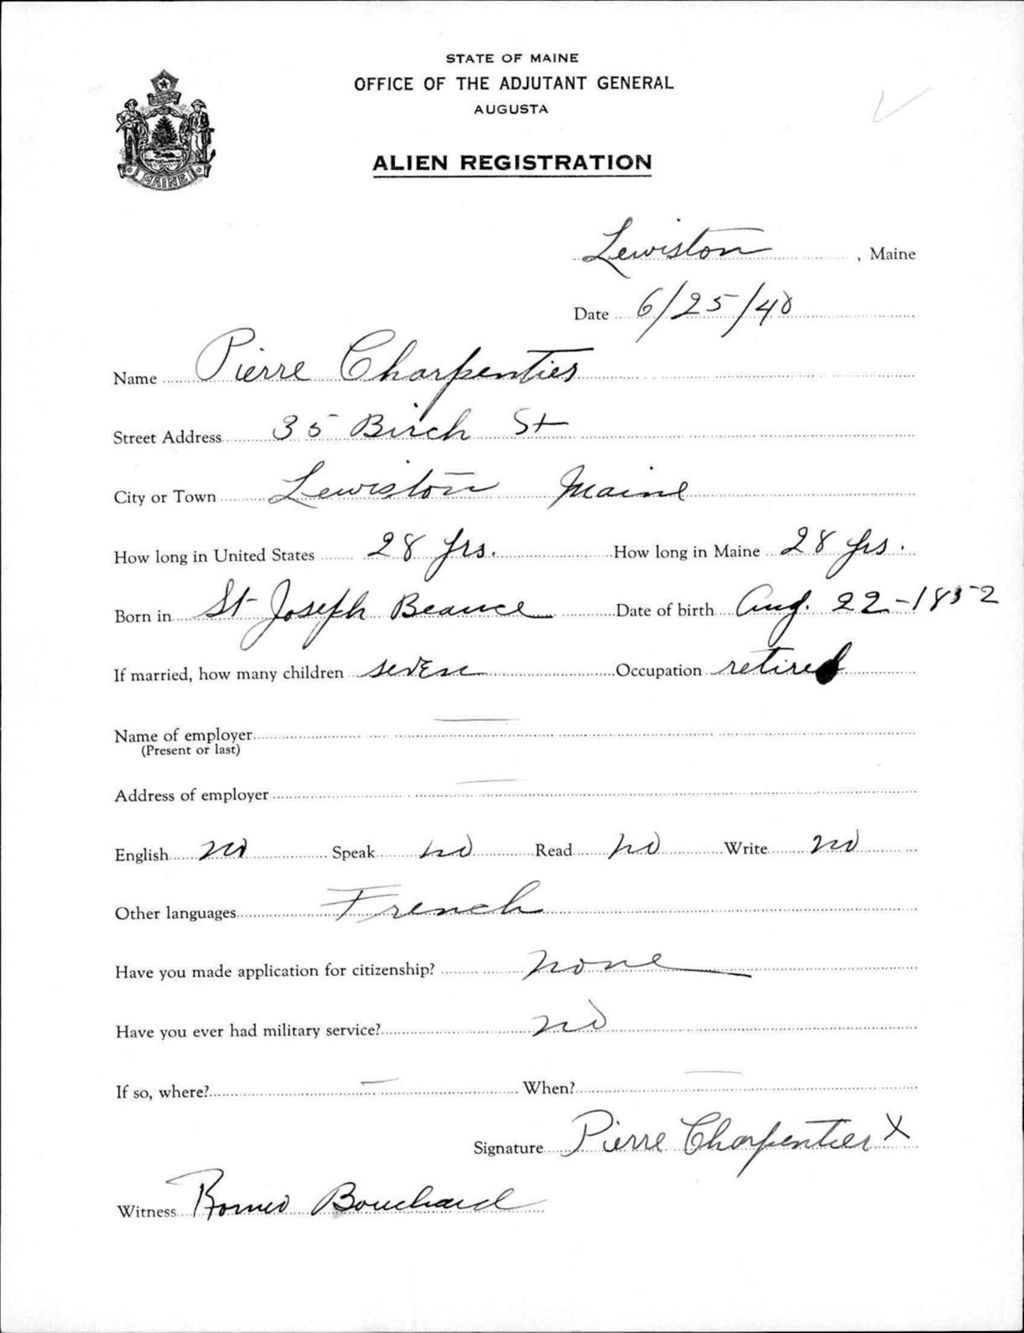 STATE OF MAINE
OFFICE OF THE ADJUTANT GENERAL
AUGUSTA
ALIEN REGISTRATION
MAINE
Lewiston, Maine
Date 6/25/40
Name Pierre Charpentier
Street Address 35 Birch St
City or Town Lewiston Maine
How long in United States 28 yrs. How long in Maine 28 yrs.
Born in St Joseph Beauce Date of birth Aug. 22-1852
If married, how many children seven Occupation retired
Name of employer —
(Present or last)
Address of employer —
English no Speak no Read no Write no
Other languages French
Have you made application for citizenship? none
Have you ever had military service? no
If so, where? — When? —
Signature Pierre Charpentier X
Witness Romeo Bouchard